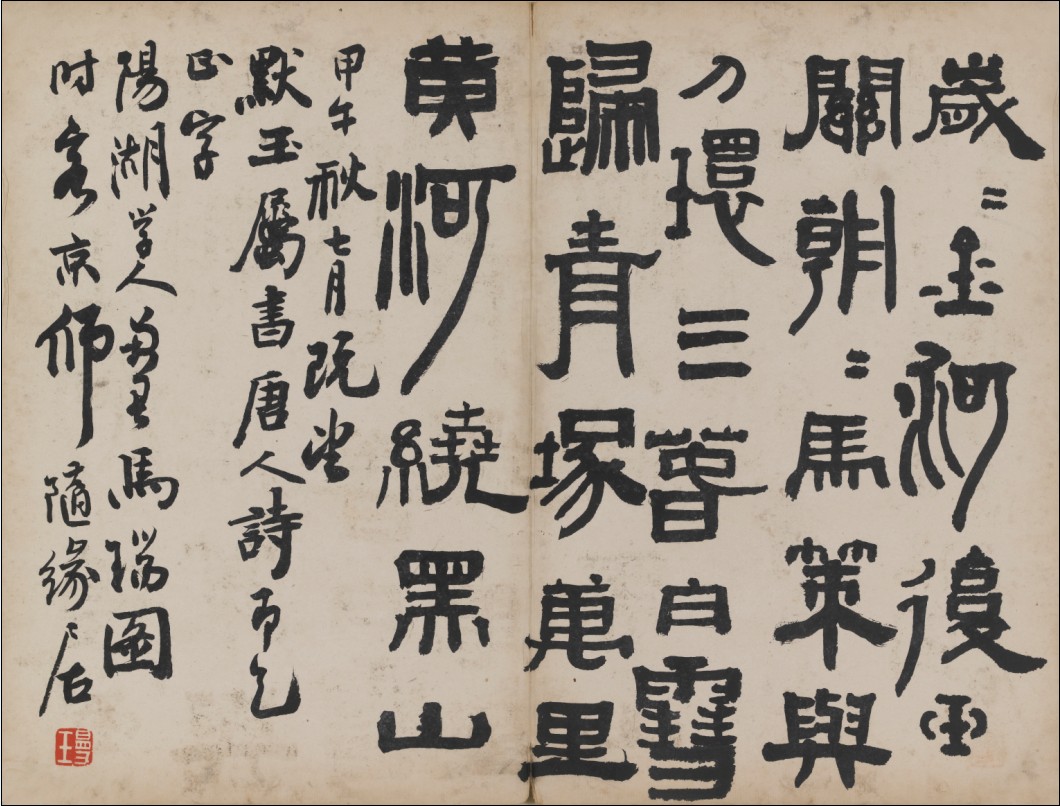 歲〻金河復玉
關朝〻馬策與
刀環三萅白雪
歸青塚萬里
黃河繞黑山
甲午秋七月既望
默玉屬書唐人詩即乞
正字
陽湖学人馬瑞图
时客京师隨緣居